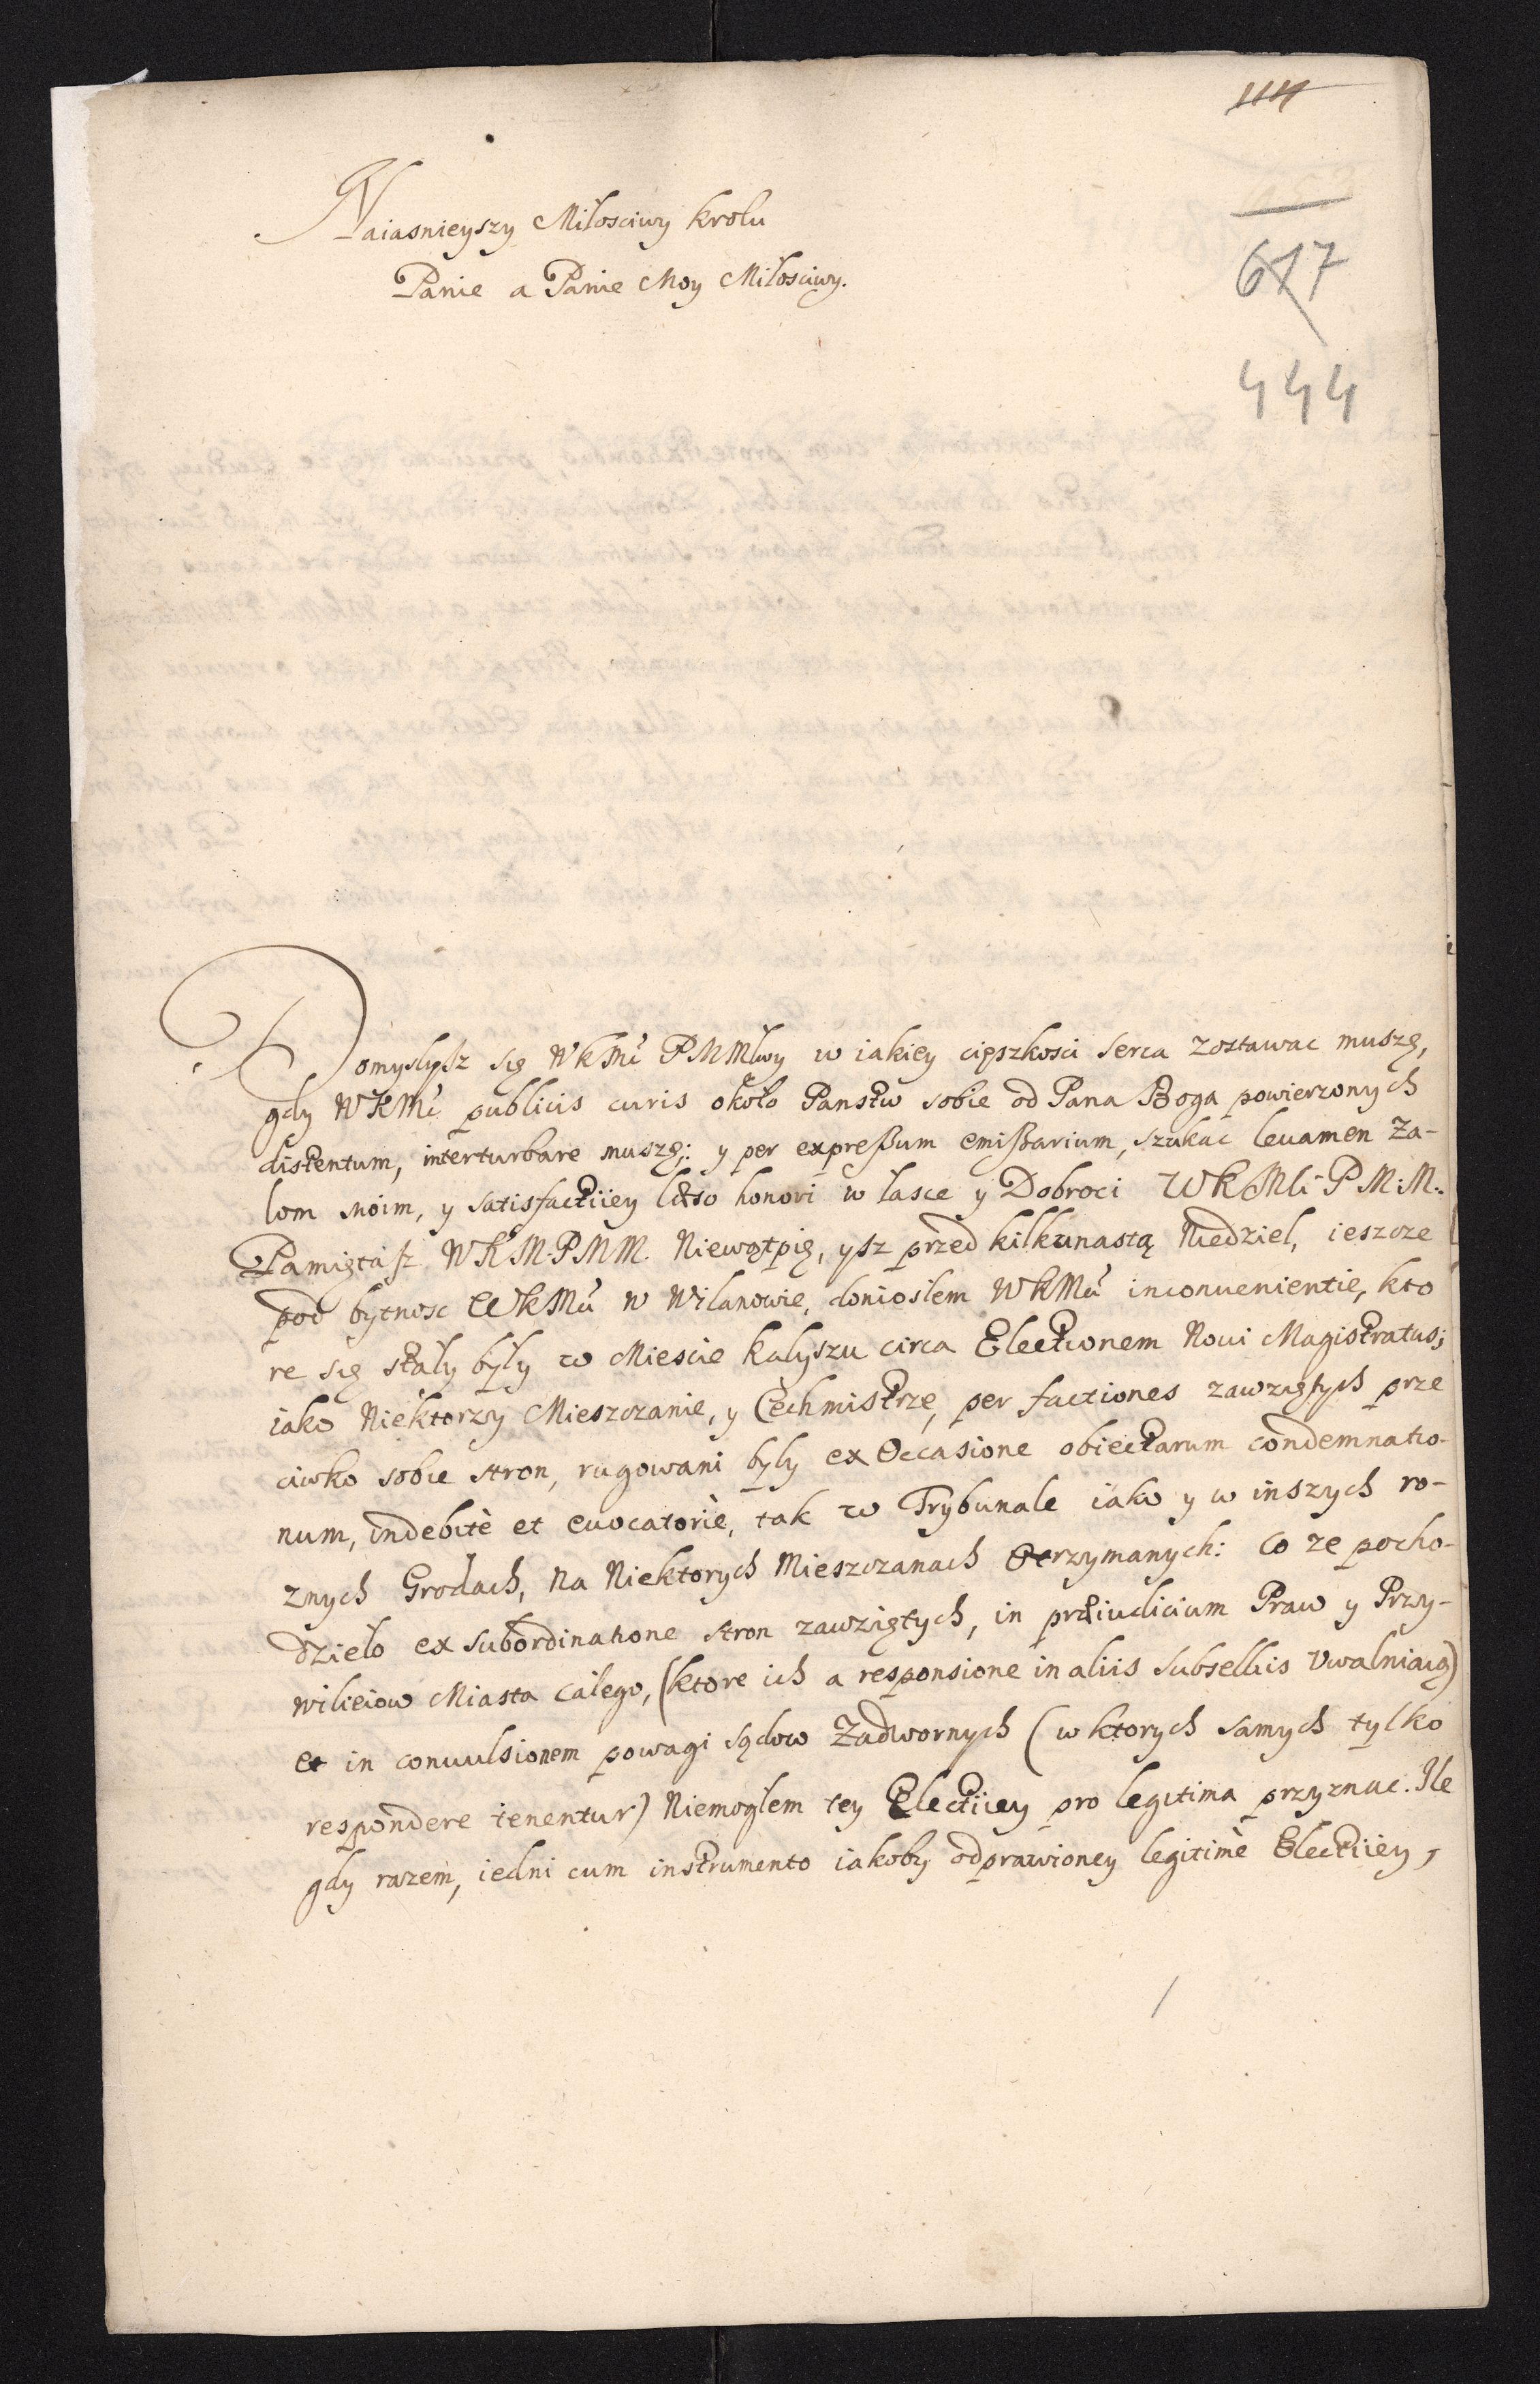 1114
617
444
Naiasnieyszy Miłosciwy Krolu
Panie a Panie Moy Miłosciwy.
Domyslysz się WKMć PMMłwy w iakiey cięszkosci serca zostawac muszę,
gdy WKMć publicis curis około Panstw sobie od Pana Boga powierzonych
distentum, interturbare muszę: y per expressum emissarium, szukac levamen Ża-
lom moim, y satisfactiiey læso honori w łasce y Dobroci WKMći P M: M:
Pamiętasz WKM. PMM. Niewątpię, ysz przed kilkunastą Niedziel, ieszcze
pod bytnosc WKMći w Wilanowie, doniosłem WKMći inconvenientie, kto
re się stały były w Miescie Kalyszu circa Electionem Novi Magistratus;
iako Niektorzy Mieszczanie, y Cechmistrze, per factiones zawziętych prze
ciwko sobie stron, rugowani były ex Occasione obiectarum condemnatio-
num, indebitè et evocatoriè, tak w Trybunale iako y w inszych ro-
znych Grodach, Na Niektorych Mieszczanach Otrzymanych: Co ze pocho-
dzieło ex subordinatione stron zawziętych, in præiudicium Praw y Przy-
wilieiow Miasta całego, (ktore ich a responsione in aliis Subselliis Uwalniaią)
et in convulsionem powagi sądow Zadwornych (w ktorych samych tylko
respondere tenentur) Niemogłem tey Electiiey pro legitima przyznac. Ile
gdy razem, iedni cum instrumento iakoby odprawioney legitimè Electiiey,